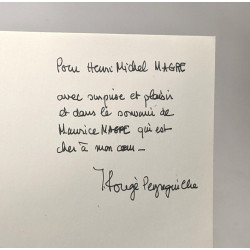 Pour Henri Michel MAGRE
avec surprise et plaisir
et dans le souvenir de
Maurice MAGRE qui est
cher à mon cœur_